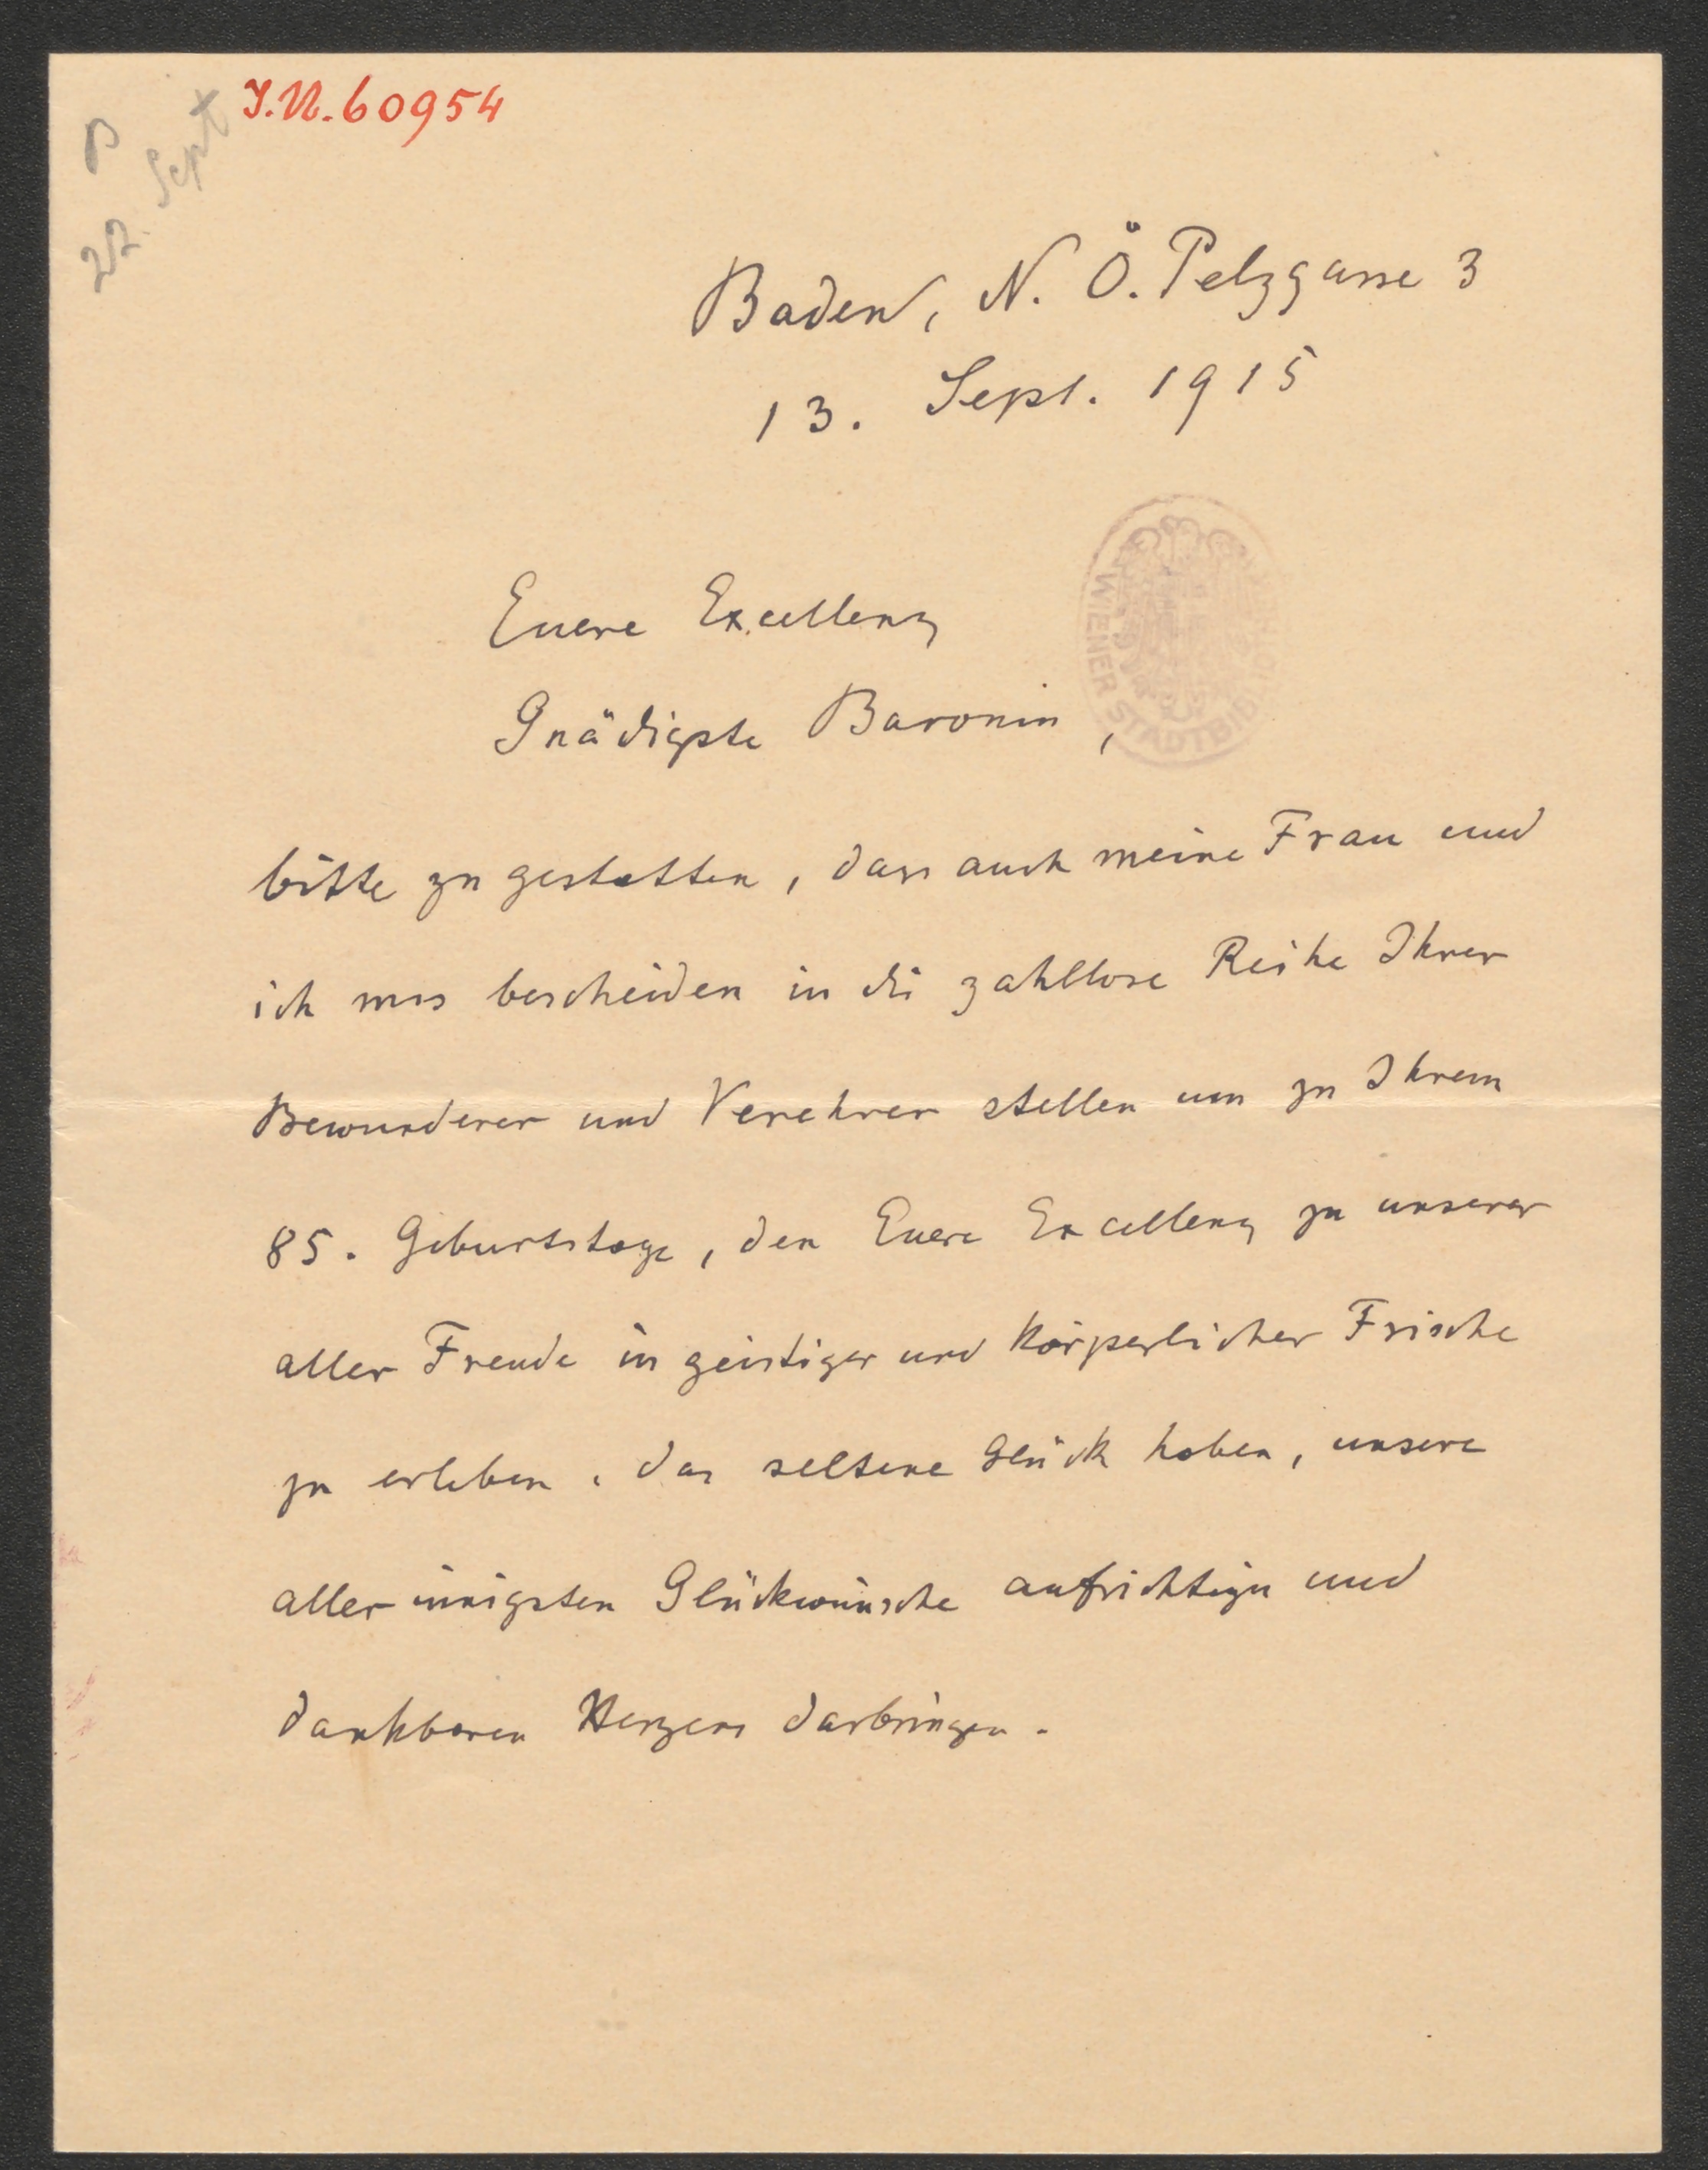 I.N. 60954
22. Sept
Baden, N. Ö. Pelzgasse 3
13. Sept. 1915
WIENER STADTBIBLIOTHEK
Euere Excellenz
Gnädigste Baronin,
bitte zu gestatten, dass auch meine Frau und
ich uns bescheiden in die zahllose Reihe Ihrer
Bewunderer und Verehrer stellen um zu Ihrem
85. Geburtstage, den Euere Excellenz zu unserer
aller Freude in geistiger und körperlicher Frische
zu erleben, das seltene Glück haben, unsere
aller innigsten Glückwünsche aufrichtigen und
dankbaren Herzens darbringen.